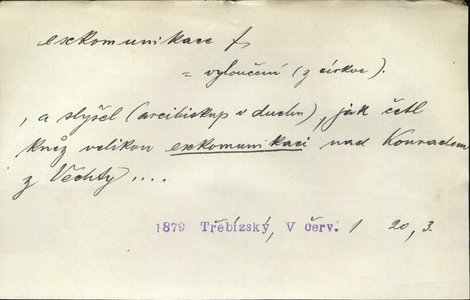 exkomunikace f
= vyloučení (z církve).
, a slyšel (arcibiskup v duchu), jak četl
kněz velikou exkomunikaci nad Konradem
z Vechty ....
1879 Třebízský, V červ. 1 20, 3.